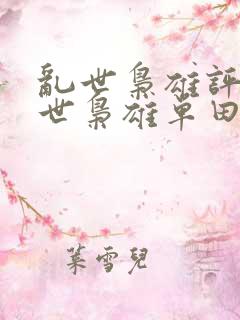 亂世梟雄評
世梟雄單田
葉雪兒